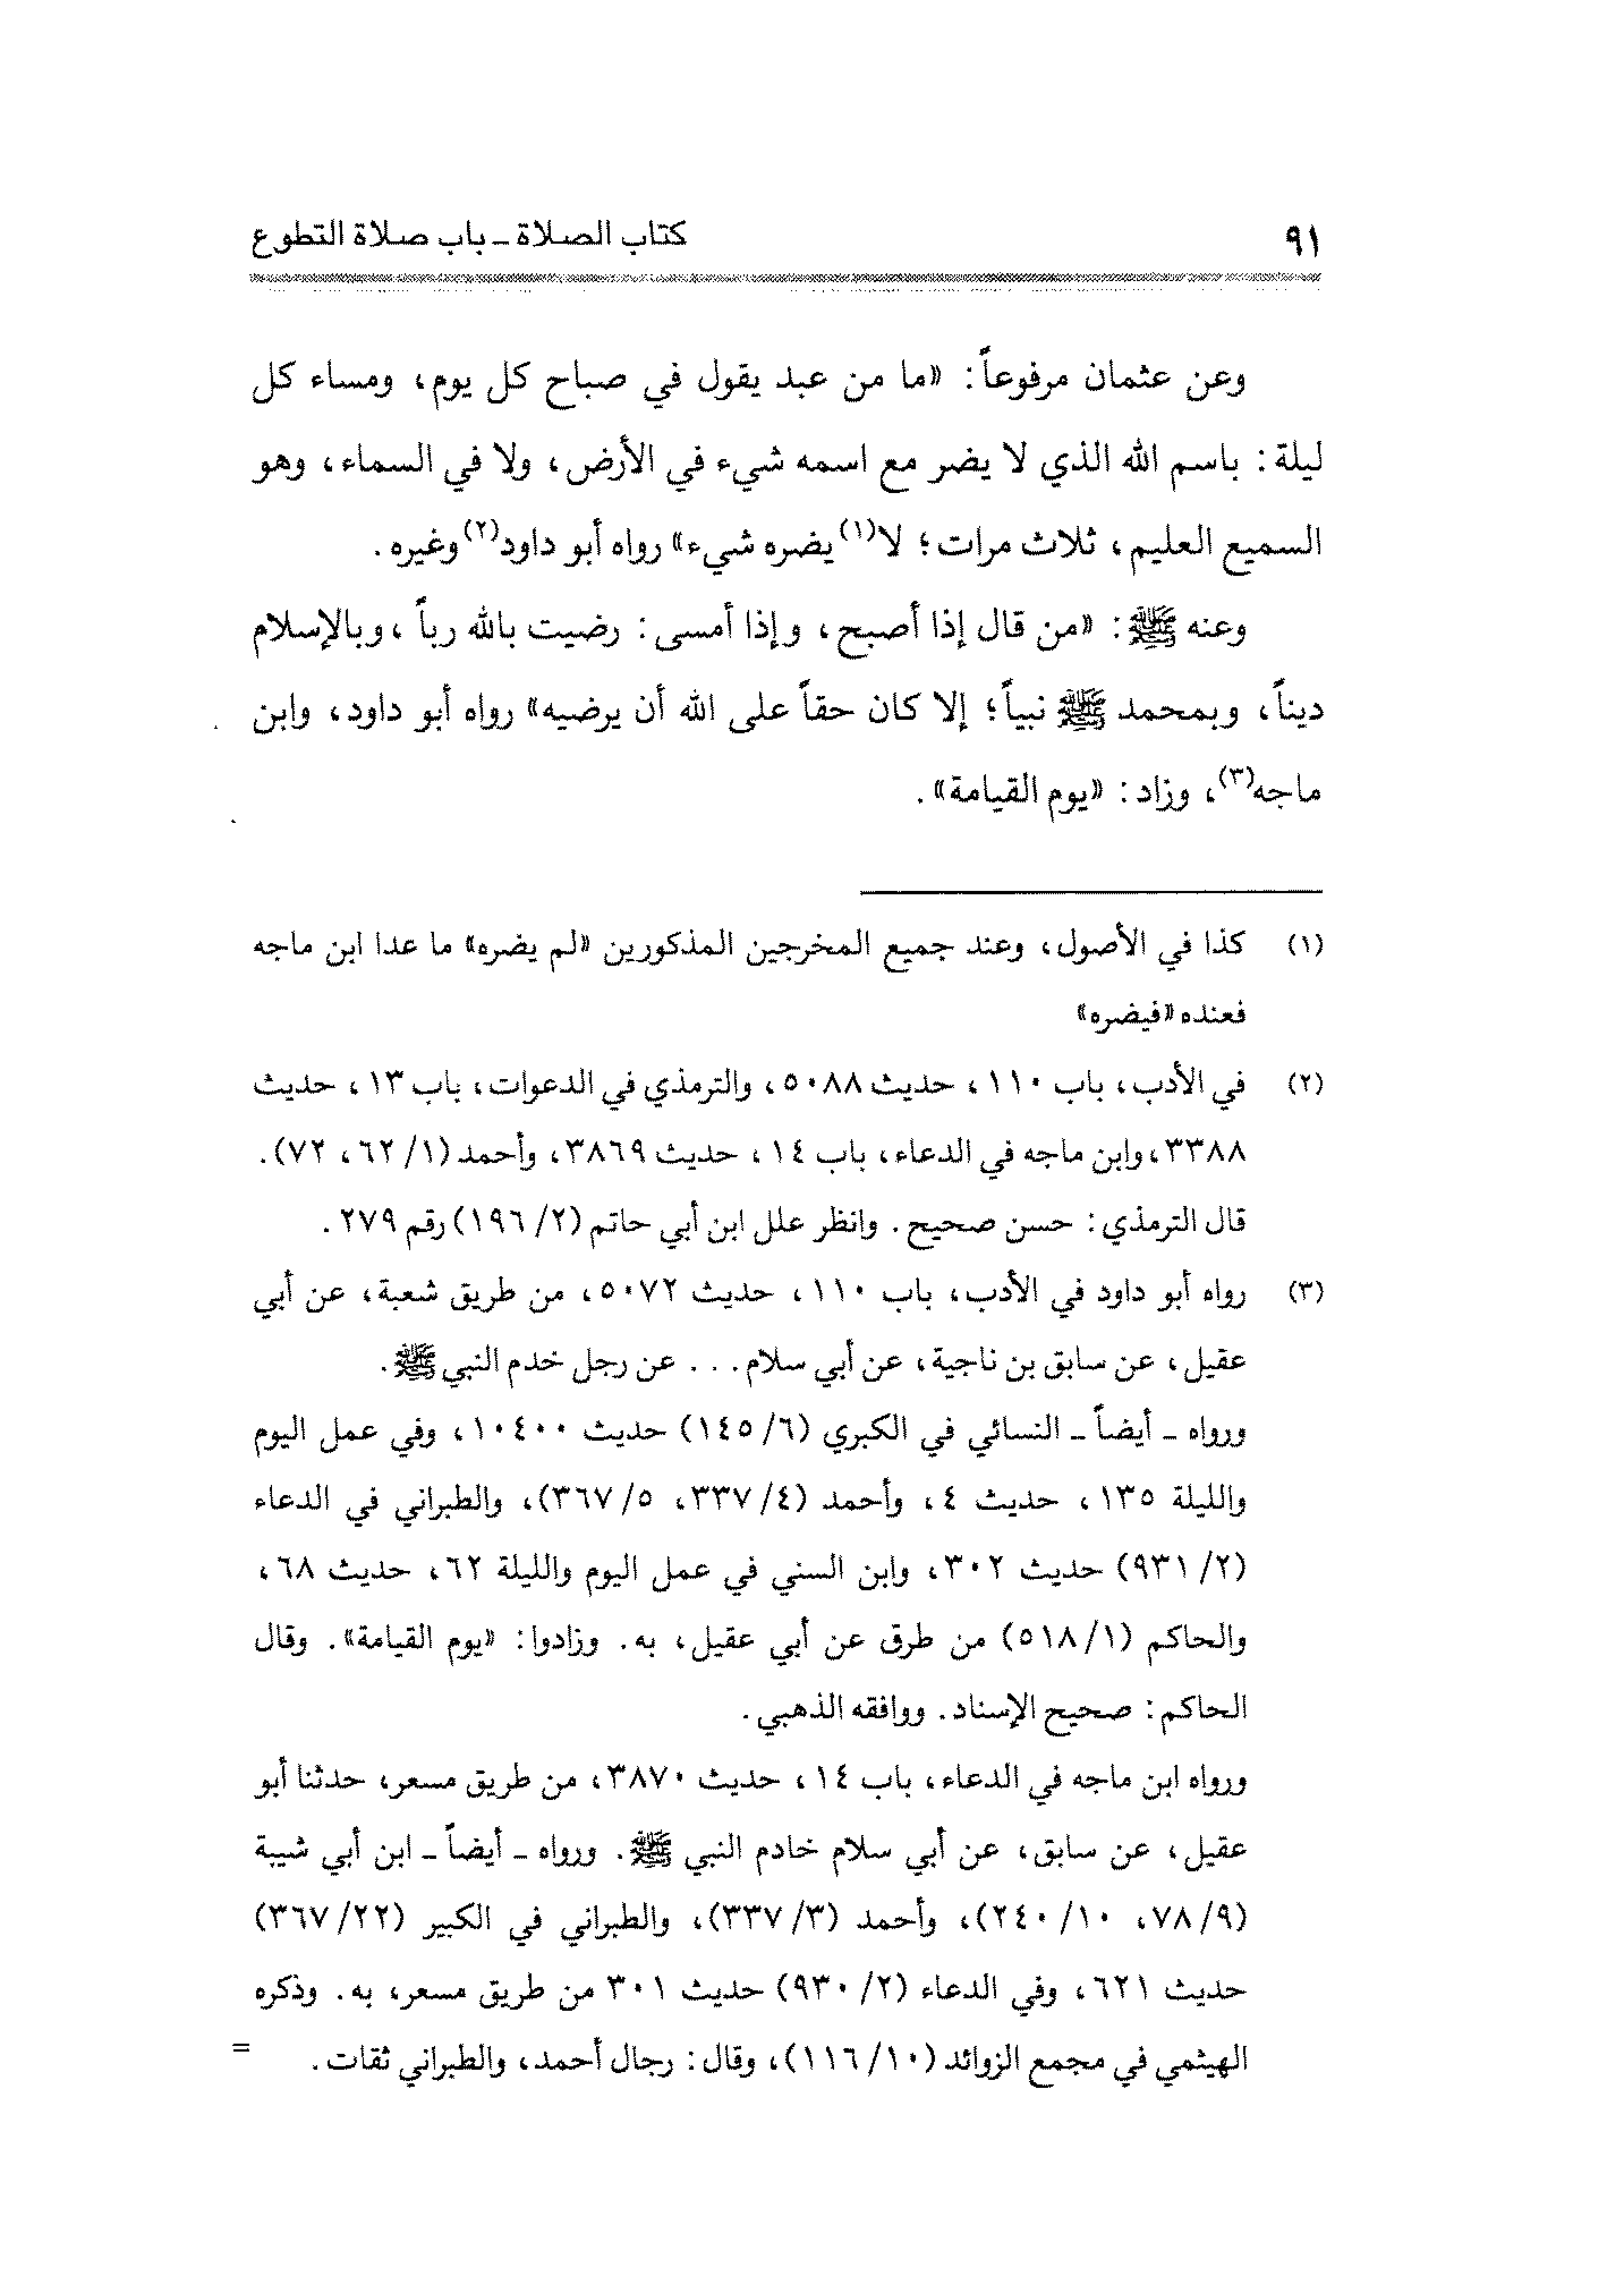 ٩١
كتاب الصلاة ـ باب صلاة التطوع
وعن عثمان مرفوعاً: «ما من عبد يقول في صباح كل يوم، ومساء كل
ليلة: باسم الله الذي لا يضر مع اسمه شيء في الأرض، ولا في السماء، وهو
السميع العليم، ثلاث مرات؛ لا(١) يضره شيء» رواه أبو داود(٢) وغيره.
وعنه ﷺ: «من قال إذا أصبح، وإذا أمسى: رضيت بالله رباً، وبالإسلام
ديناً، وبمحمد ﷺ نبياً؛ إلا كان حقاً على الله أن يرضيه» رواه أبو داود، وابن
ماجه(٣)، وزاد: «يوم القيامة».
(١) كذا في الأصول، وعند جميع المخرجين المذكورين «لم يضره» ما عدا ابن ماجه
فعنده «فيضره»
(٢) في الأدب، باب ١١٠، حديث ٥٠٨٨، والترمذي في الدعوات، باب ١٣، حديث
٣٣٨٨، وابن ماجه في الدعاء، باب ١٤، حديث ٣٨٦٩، وأحمد (١/ ٦٢، ٧٢).
قال الترمذي: حسن صحيح. وانظر علل ابن أبي حاتم (٢/ ١٩٦) رقم ٢٧٩.
(٣) رواه أبو داود في الأدب، باب ١١٠، حديث ٥٠٧٢، من طريق شعبة، عن أبي
عقيل، عن سابق بن ناجية، عن أبي سلام... عن رجل خدم النبي ﷺ.
ورواه ـ أيضاً ـ النسائي في الكبري (٦/ ١٤٥) حديث ١٠٤٠٠، وفي عمل اليوم
والليلة ١٣٥، حديث ٤، وأحمد (٤/ ٣٣٧، ٥/ ٣٦٧)، والطبراني في الدعاء
(٢/ ٩٣١) حديث ٣٠٢، وابن السني في عمل اليوم والليلة ٦٢، حديث ٦٨،
والحاكم (١/ ٥١٨) من طرق عن أبي عقيل، به. وزادوا: «يوم القيامة». وقال
الحاكم: صحيح الإسناد. ووافقه الذهبي.
ورواه ابن ماجه في الدعاء، باب ١٤، حديث ٣٨٧٠، من طريق مسعر، حدثنا أبو
عقيل، عن سابق، عن أبي سلام خادم النبي ﷺ. ورواه ـ أيضاً ـ ابن أبي شيبة
(٩/ ٧٨، ١٠/ ٢٤٠)، وأحمد (٣/ ٣٣٧)، والطبراني في الكبير (٢٢/ ٣٦٧)
حديث ٦٢١، وفي الدعاء (٢/ ٩٣٠) حديث ٣٠١ من طريق مسعر، به. وذكره
الهيثمي في مجمع الزوائد (١٠/ ١١٦)، وقال: رجال أحمد، والطبراني ثقات. =